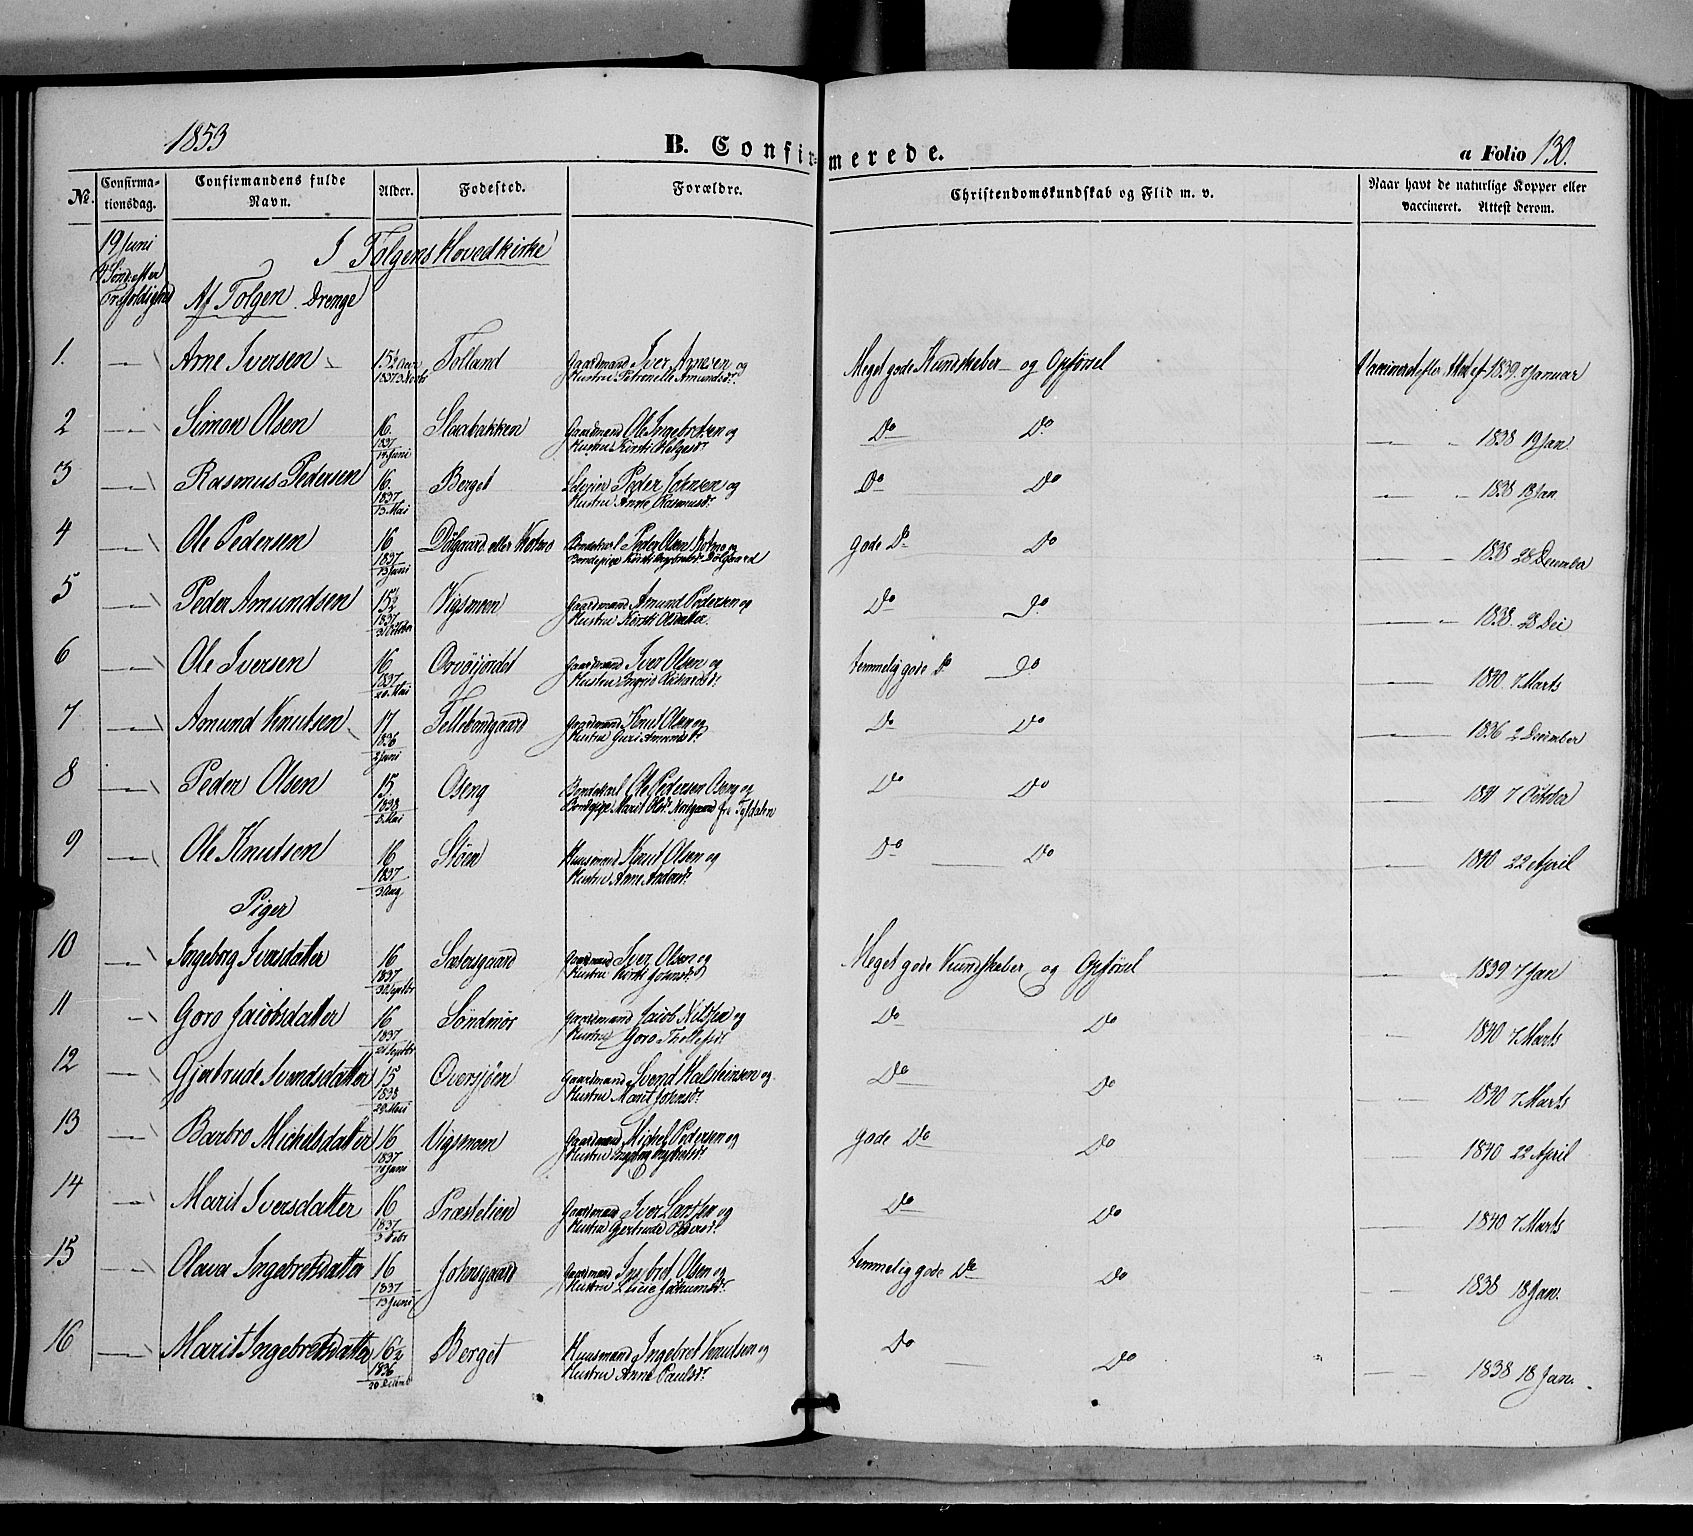 1853
B. Confirmerede.
a Folio 130.
No.
Confirmationsdag.
Confirmandens fulde Navn.
Alder.
Fodested.
Forældre.
Christendomskundskab og Flid m. v.
Naar havt de naturlige Kopper eller vaccineret. Attest derom.
19 Juni
4 Sønd. efter
Trefoldighed
I Tolgens Hovedkirke
Af Tolgen Drenge
1. Arne Iversen 15½ Aar 1837 Tolland Gaardmand Iver Arnesen og Meget gode Kundskaber og Opførsel Vaccineret efter Attest af 1839 7 Januar
Hustru Petronelle Amundsdr.
2 Simon Olsen 16 1837 14 Juni Gaardmand Ole Ingebretsen og Do Do 1838 19 Jan.
Hustru Kirsti Helgesdr.
3 Rasmus Pedersen 16. 1837 13 Mai Berget Peder Johnsen og Do Do 1838 18 Jan
Hustru Anne Rasmusdr.
4 Ole Pedersen 16 1837 13 Juni Dølgaard eller Kotmo Bondekarl Peder Olsen Kotmo og gode Do Do 1838 28 December
Bondepige Kirsti Dølgaard
5 Peder Amundsen 15½ 1837 October Vigsmoen Gaardmand Amund Pedersen og Do Do 1838. 28 Dec
Hustru Kirsti Olsdatter.
6 Ole Iversen 16 1837 20. Mai Gaardmand Iver Olsen og temmelig gode Do Do 1840. 7 Marts
Hustru Ingrid
7 Amund Knutsen 17 1836 2 Juni Gaardmand Knut Olsen og Do Do 1836 2 December
Hustru Guri Amundsdr.
8 Peder Olsen 15. 1838 8. Mai Oseng Bondekarl Ole Pedersen Oseng og Do Do 1841 7 October
Bondepige Marit Olsdr. fra Tyldalen
9 Ole Knutsen 16 1837 3 Aug Støen Huusmand Knut Olsen og Do Do 1840 22 April
Hustru Anne Andersdr.
Piger
10 Ingeborg Iversdatter 16 1837 Sætersgaard Gaardmand Iver Olsen og Meget gode Kundskaber og Opførsel 1839 7 Jan
Hustru Kirsti Johnsdr.
11 Goro Jacobsdatter 16 1837 Søndmør Gaardmand Jacob Nilsen og Do Do 1840 7 Marts
Hustru Goro
12 Gjertrude Svendsdatter 15 1838 Oversjøen Gaardmand Svend Halsteinsen og Do Do 1840 7 Marts
Hustru Marit Johnsdr.
13 Barbro Michelsdatter 16 1837 Juni Vigsmoen Gaardmand Michel Pedersen og gode Do Do 1840 22 April
Hustru Ingeborg
14 Marit Iversdatter 16 1837 3 Febr Præstelien Gaardmand Iver Larssen og Do Do 1840 7 Marts
Hustru Gjertrude Pedersdr.
15 Olava Ingebretsdatter 16 1837 13 Juni Johnsgaard Gaardmand Ingebret Olsen og temmelig gode Do Do 1838 18 Jan.
Hustru Lucie
16 Marit Ingebretsdatter 16½ 1836 20 Decemb Berget Huusmand Ingebret Knutsen og Do Do 1838 18 Jan.
Hustru Anne Paulsdr.